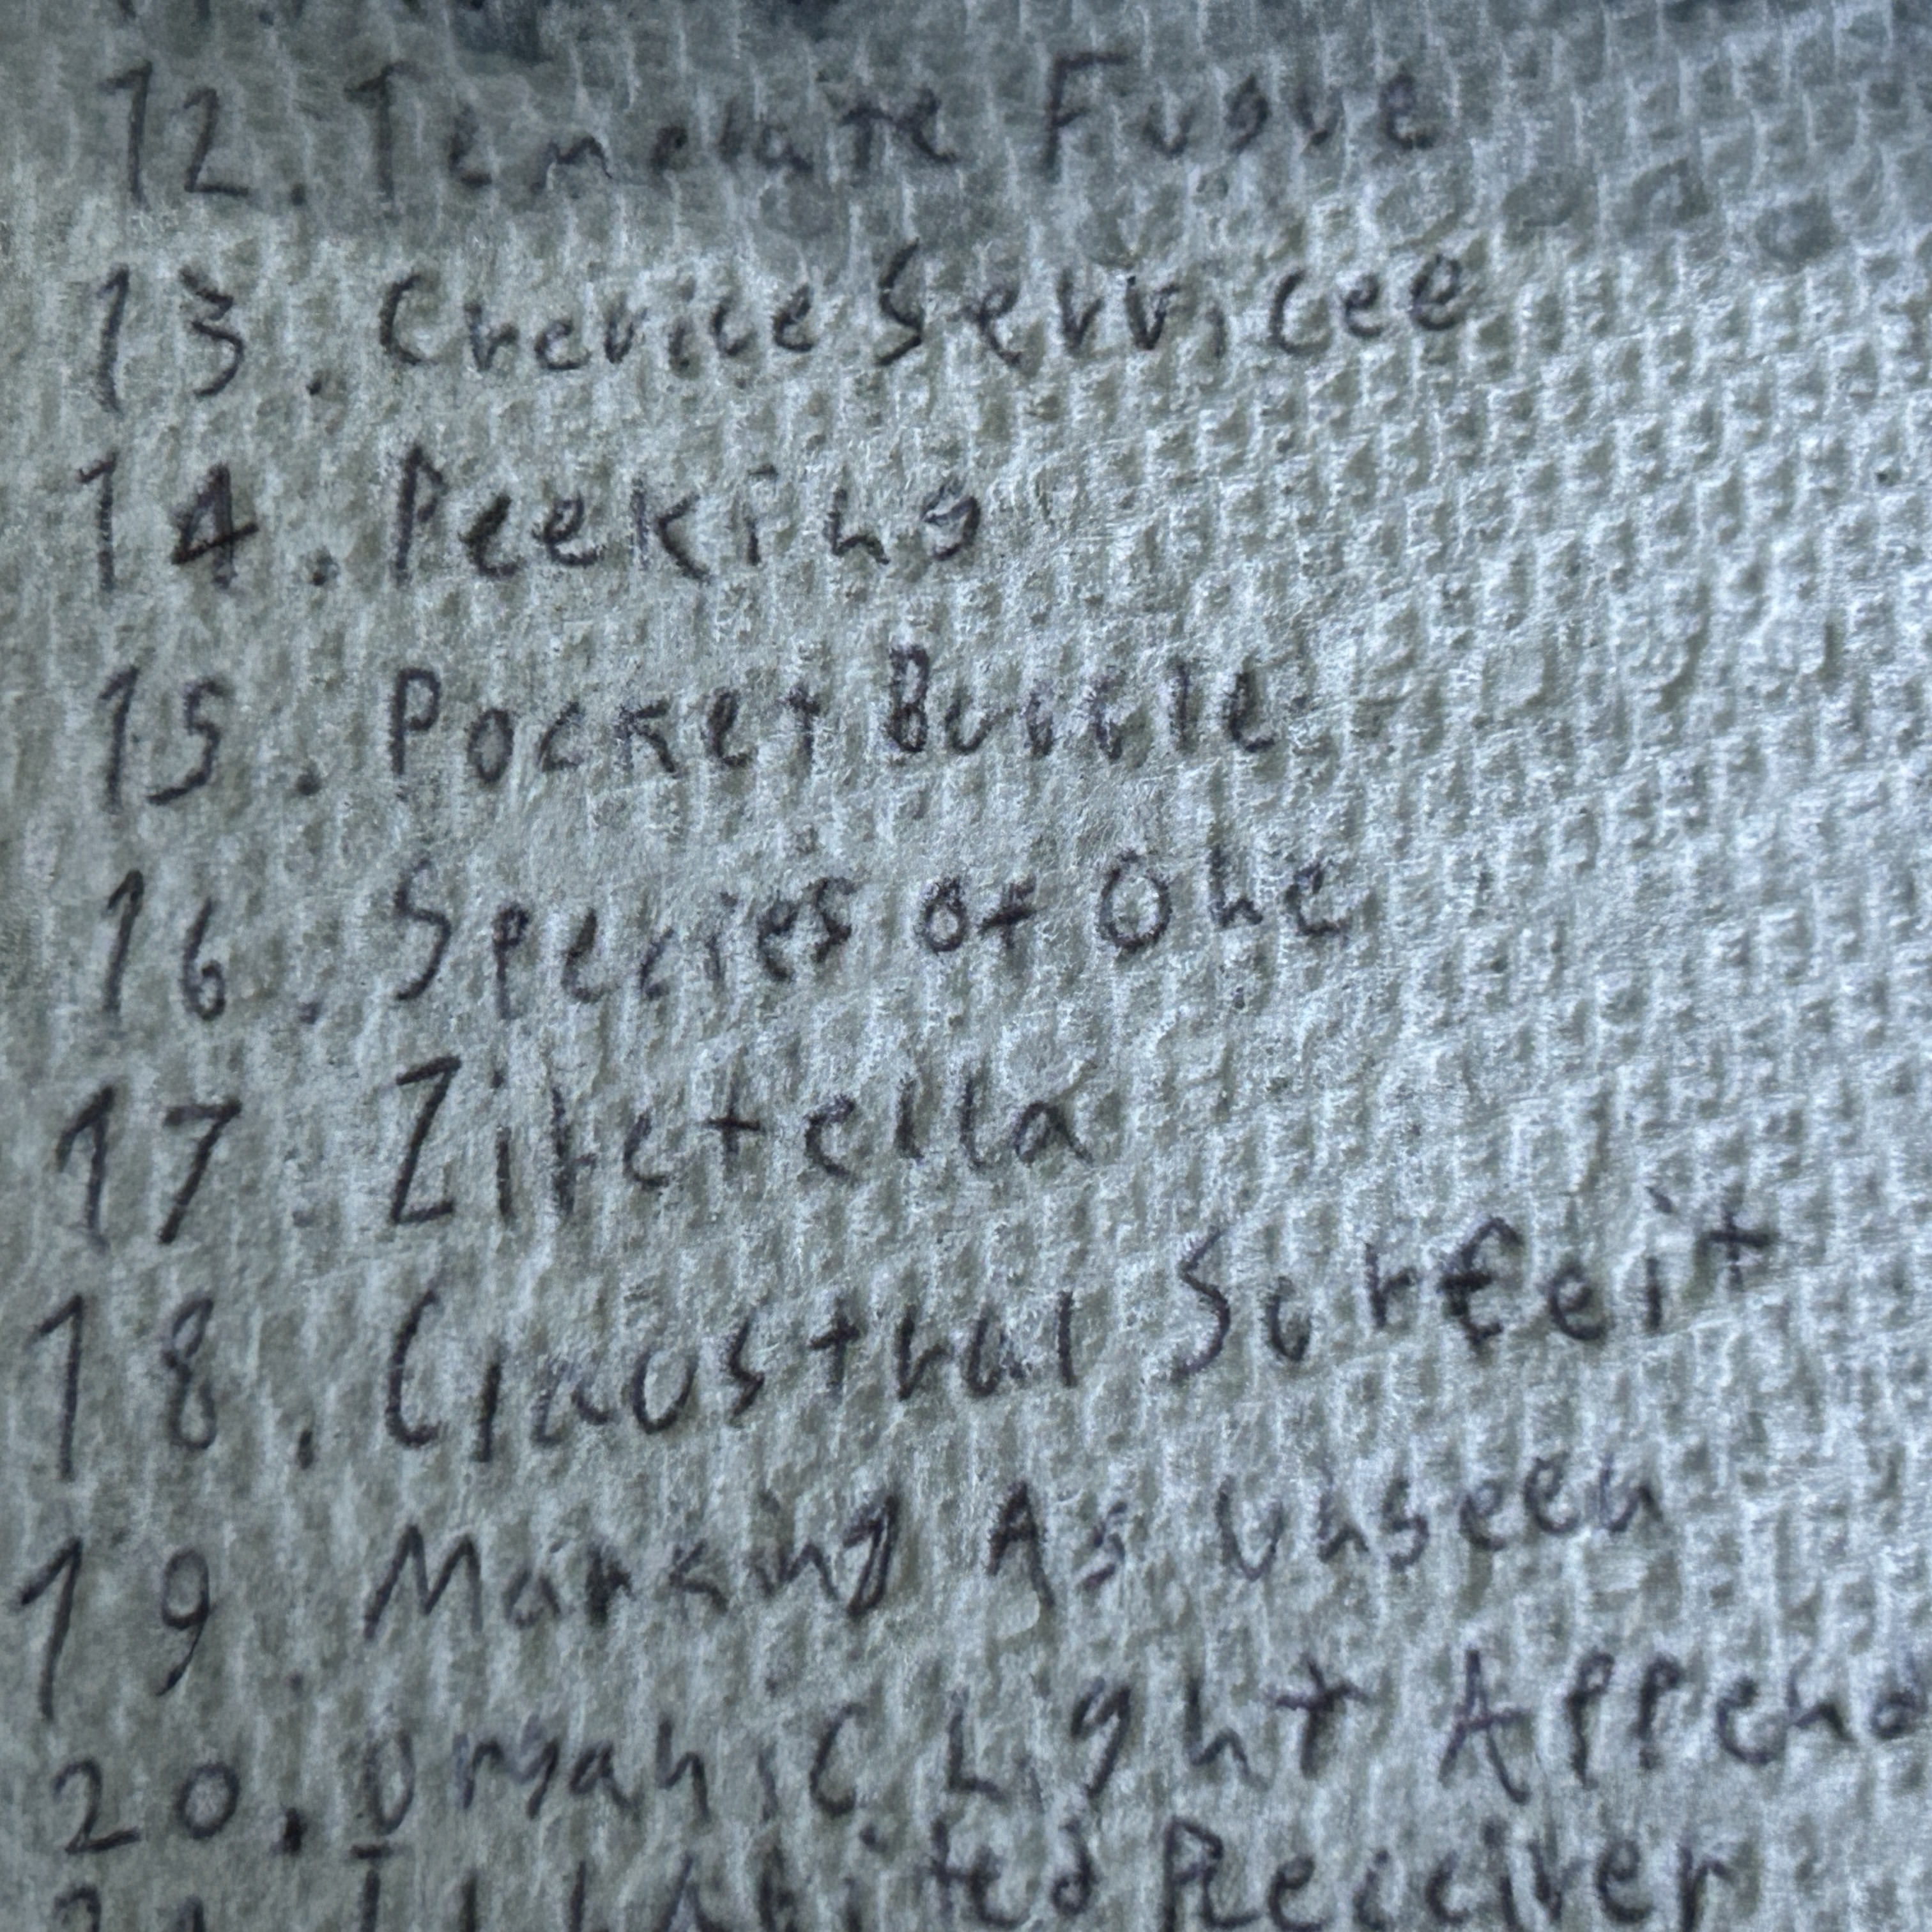 12. Temelate Fugue
13. Crevice Servicee
14. Peeking
15. Pocket Bubble
16. Species of One
17. Zirctella
18. Claustral Surfeit
19 Marking As Unseen
20. Organic Light Append
Receiver